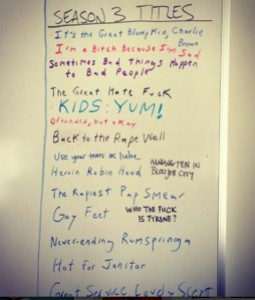 SEASON 3 TITLES
It's the Great Blumpkin, Charlie
Brown
I'm a Bitch Because I'm Sad
Sometimes Bad Things Happen
to Bad People
The Great Hate Fuck
KIDS: YUM!
Offended, but okay
Back to the Rape Well
Use your tears as lube
HANGING TEN IN
BLOWJOB CITY
Heroin Robin Hood
The Rapiest Pap Smear
Gay Feet
WHO THE FUCK
IS TYRONE?
Never-ending Rumspringa
Hot for Janitor
Great Service, Lovely